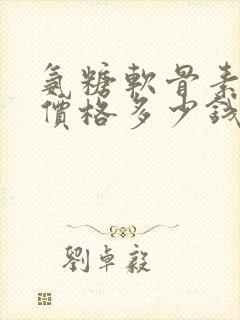 氨糖軟骨素
價格多少錢
劉卓毅